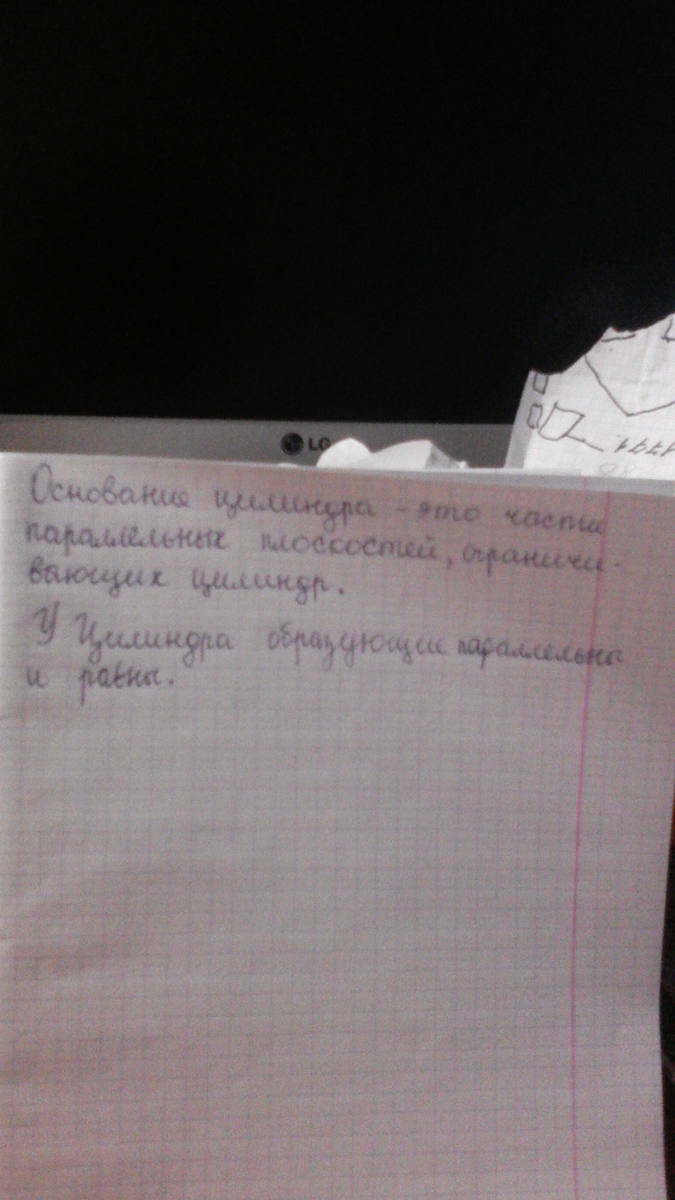 LG
Основание цилиндра - это части
параллельных плоскостей, ограничи-
вающих цилиндр.
У Цилиндра образующие параллельны
и равны.